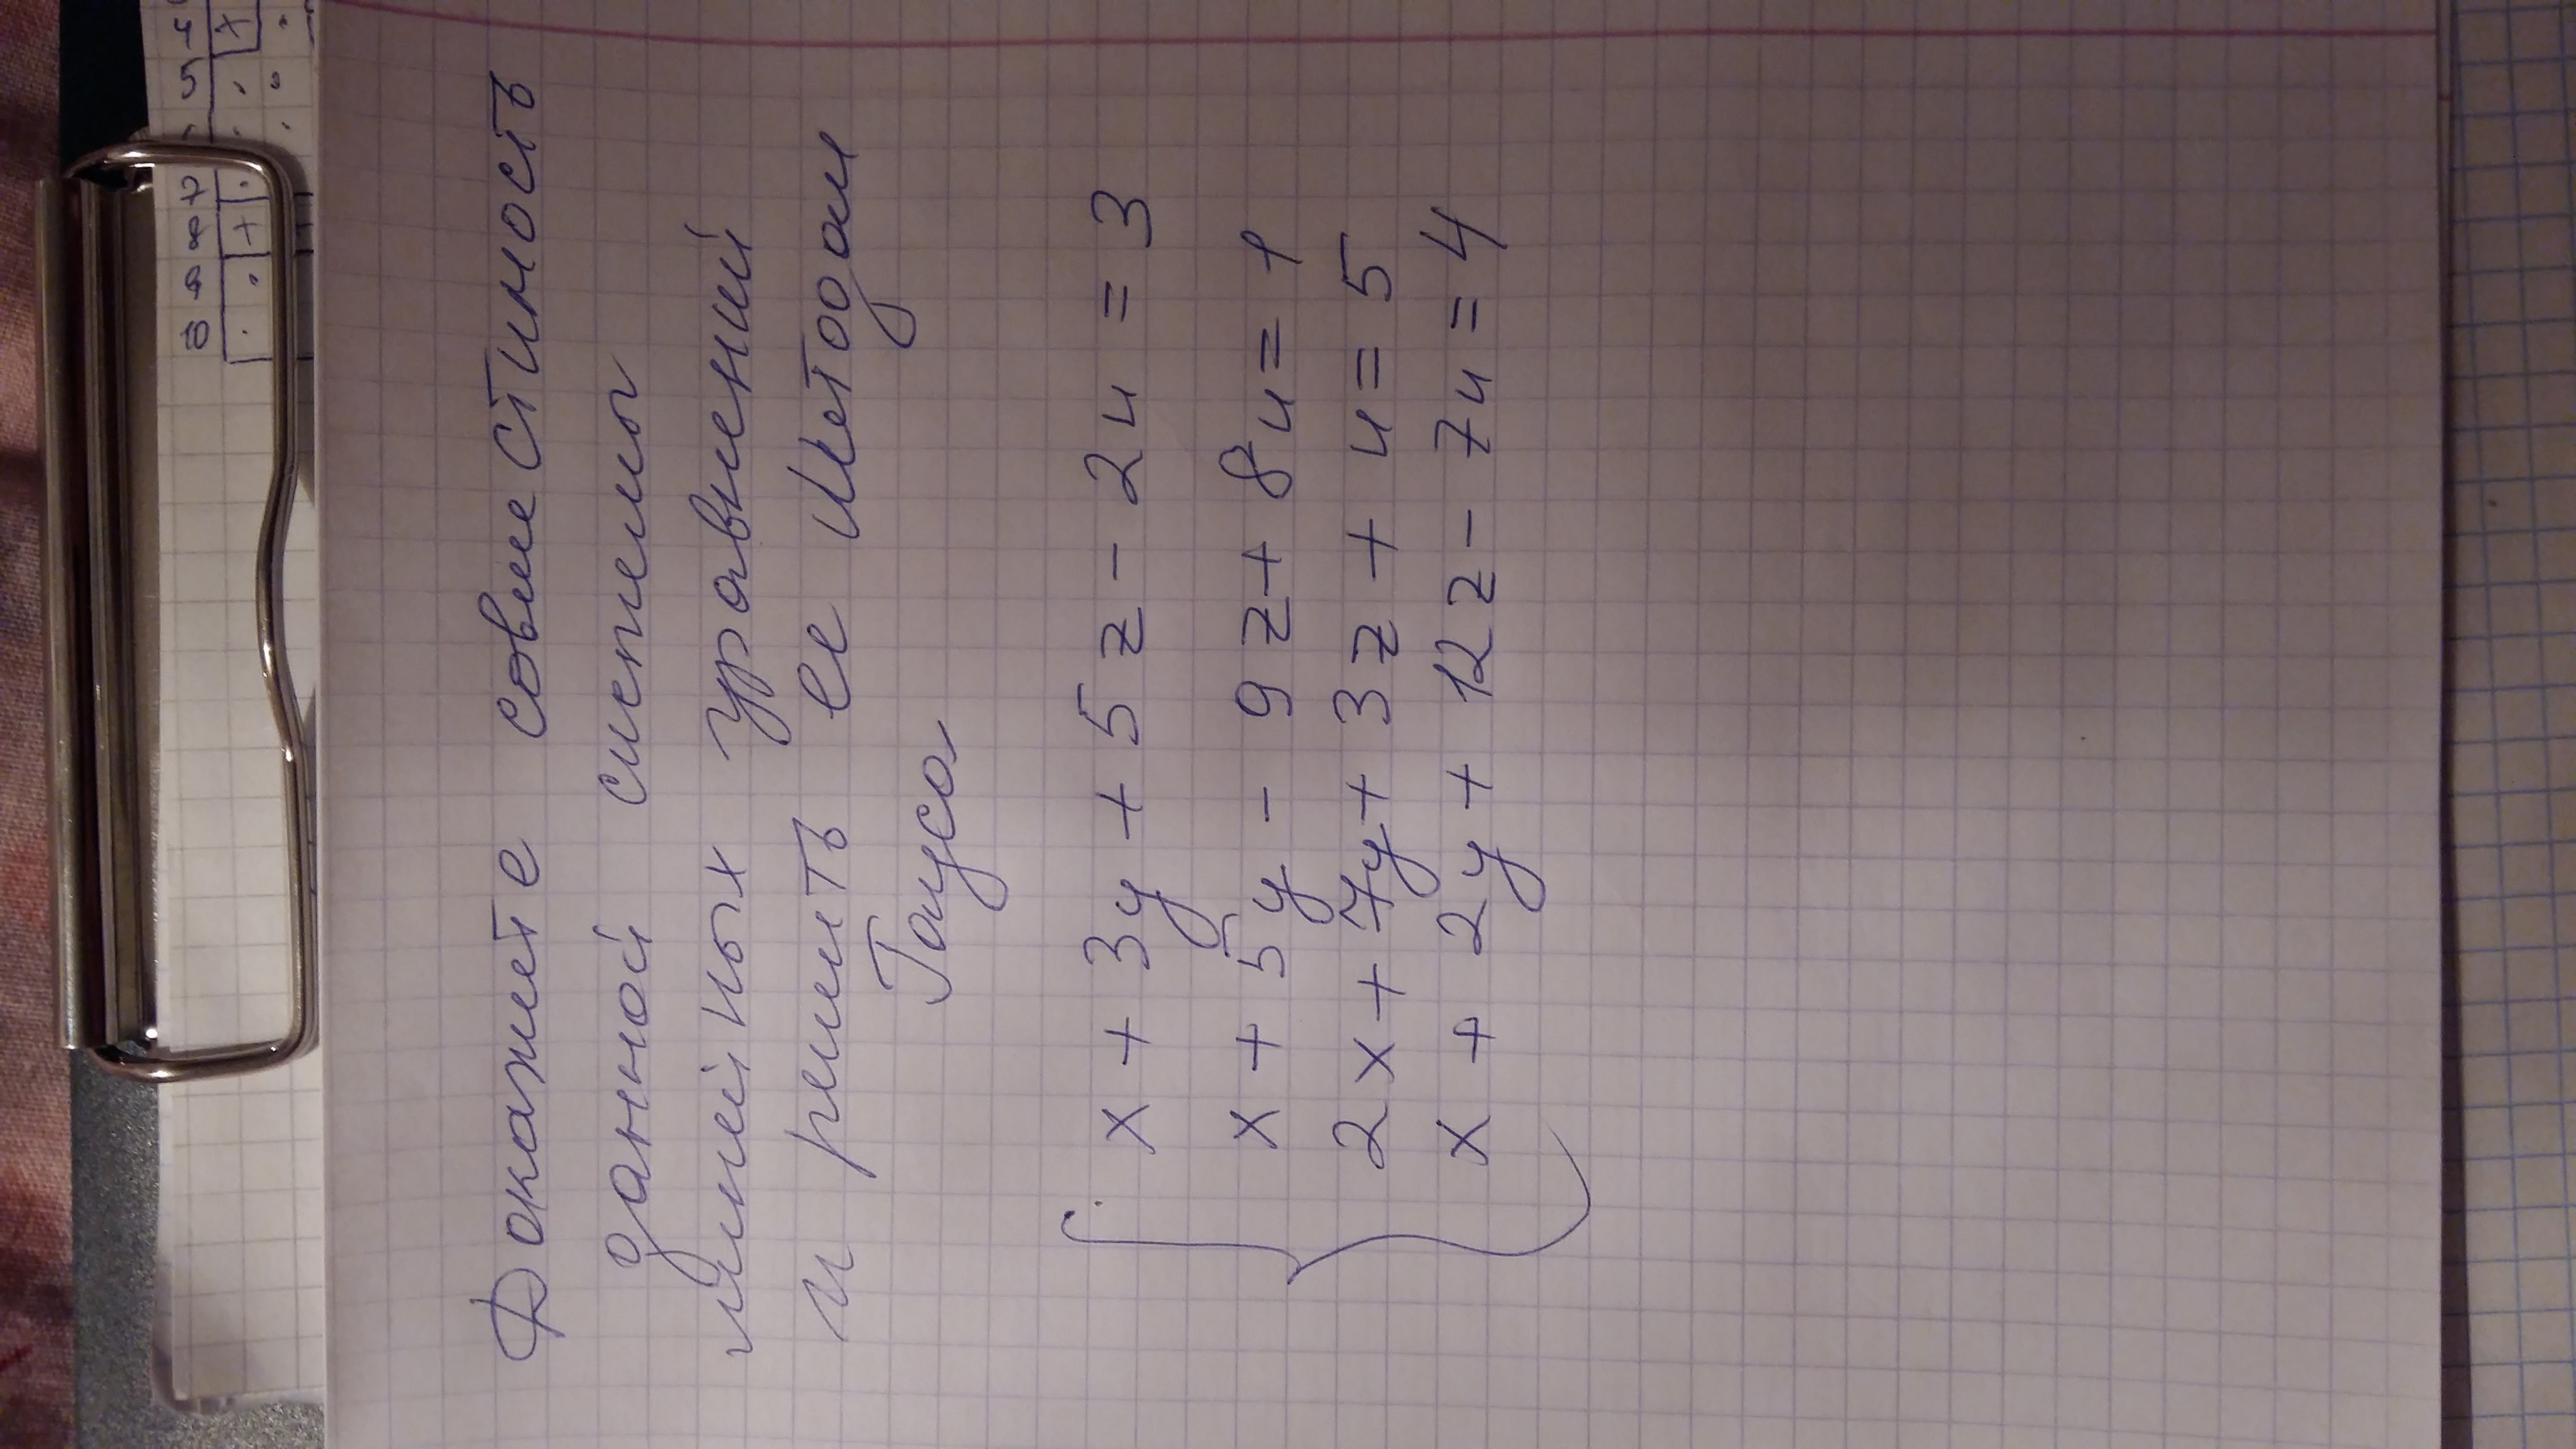 Докажете совместимость
данной системы
линейных уравнений
и решить ее методом
Гаусса
x + 3y + 5z - 2u = 3
x + 5y - 9z + 8u = 1
2x + 7y + 3z + u = 5
x + 2y + 12z - 7u = 4